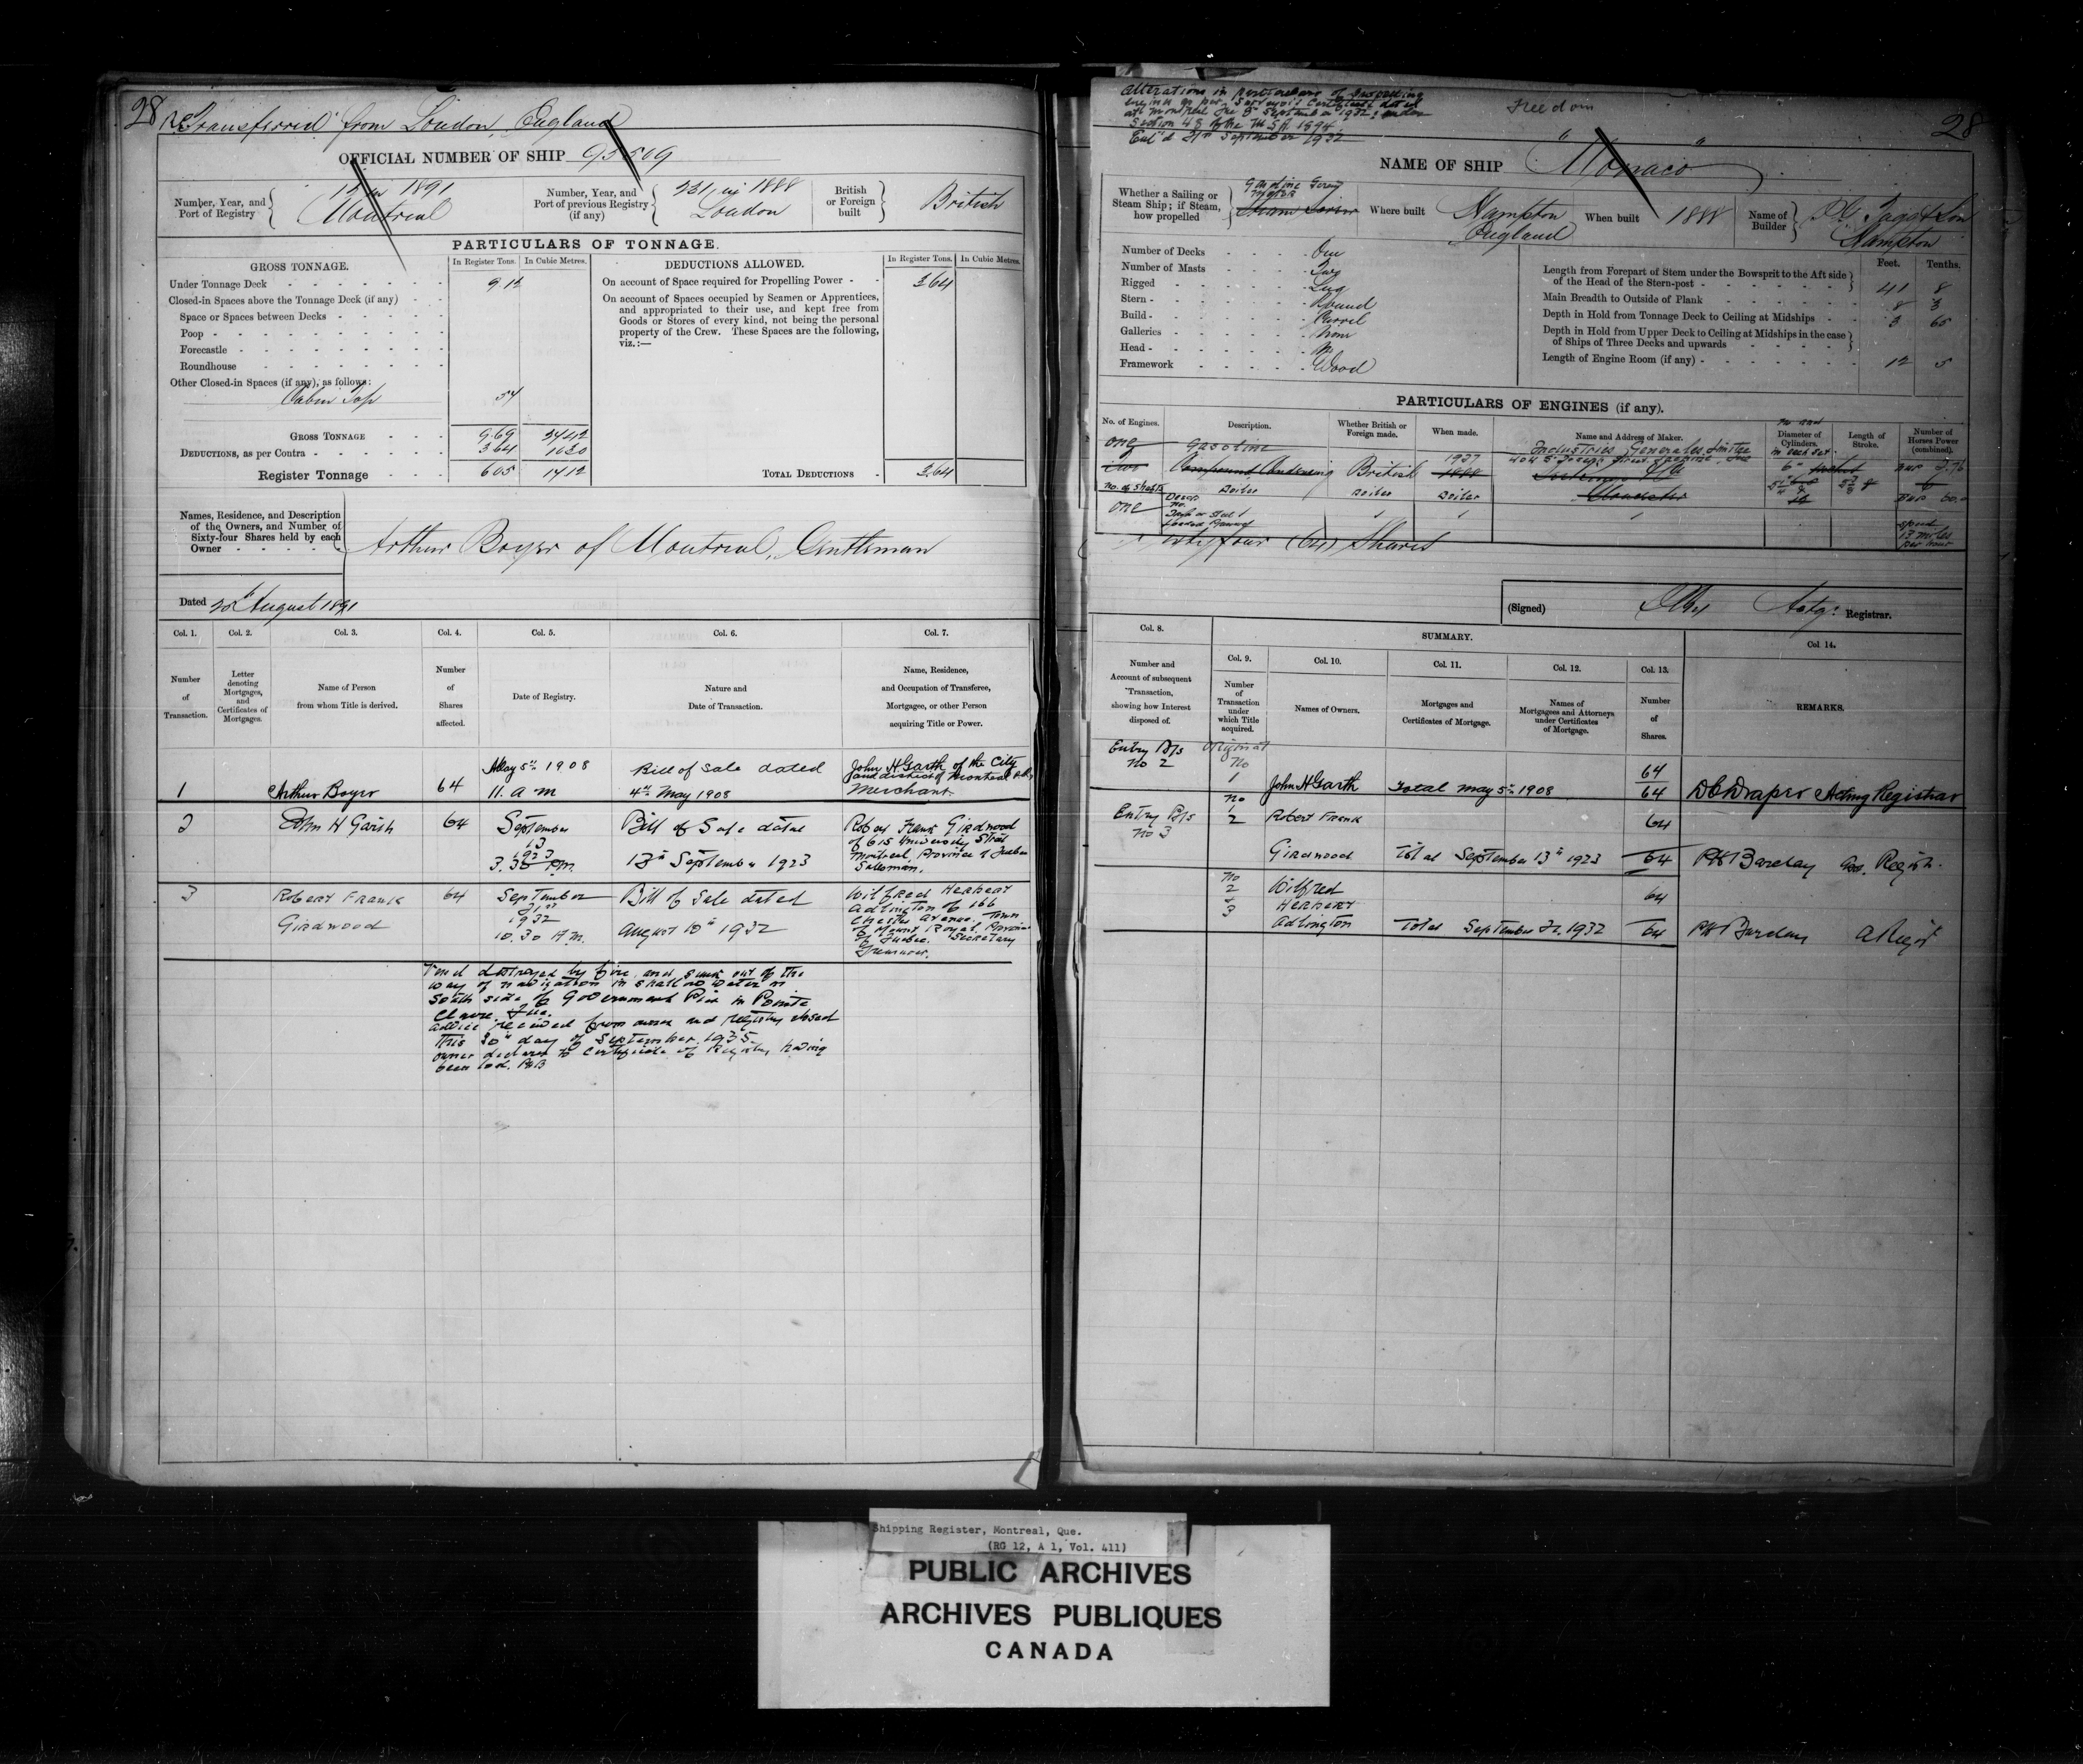 28
Transferred from London, England
OFFICIAL NUMBER OF SHIP 95509
Number, Year, and Port of Registry
12 in 1891
Montreal
Number, Year, and Port of previous Registry (if any)
231 in 1888
London
British or Foreign built
British
PARTICULARS OF TONNAGE.
GROSS TONNAGE.
In Register Tons.
In Cubic Metres.
DEDUCTIONS ALLOWED.
In Register Tons.
In Cubic Metres.
Under Tonnage Deck 9.12
Closed-in Spaces above the Tonnage Deck (if any)
Space or Spaces between Decks
Poop
Forecastle
Roundhouse
Other Closed-in Spaces (if any), as follows:
Cabin Top 57
GROSS TONNAGE 9.69 27.42
DEDUCTIONS, as per Contra 3.64 10.30
Register Tonnage 6.05 17.12
On account of Space required for Propelling Power 3.64
On account of Spaces occupied by Seamen or Apprentices,
and appropriated to their use, and kept free from
Goods or Stores of every kind, not being the personal
property of the Crew. These Spaces are the following,
viz.:—
TOTAL DEDUCTIONS 3.64
Names, Residence, and Description
of the Owners, and Number of
Sixty-four Shares held by each
Owner
Arthur Boyer of Montreal, Gentleman
Dated 20th August 1891
Col. 1. Col. 2. Col. 3. Col. 4. Col. 5. Col. 6. Col. 7.
Number of Transaction.
Letter denoting Mortgages, and Certificates of Mortgages.
Name of Person from whom Title is derived.
Number of Shares affected.
Date of Registry.
Nature and Date of Transaction.
Name, Residence, and Occupation of Transferee, Mortgagee, or other Person acquiring Title or Power.
1 Arthur Boyer 64
May 5th 1908
11. a m
Bill of Sale dated
4th May 1908
John H Garth of the City
and district of Montreal
Merchant
2 John H Garth 64
September
13
1923
3.30 PM.
Bill of Sale dated
13th September 1923
Robert Frank Girdwood
of 615 University Street
Montreal, Province of Quebec
Salesman.
3 Robert Frank
Girdwood
64
September
21st
1932
10.30 A.M.
Bill of Sale dated
August 10th 1932
Wilfred Herbert
Adlington of 166
Chester Avenue, Town
of Mount Royal, Province
of Quebec. Secretary
Treasurer.
Vessel destroyed by fire, and sunk out of the
way of navigation in shallow water on
South side of Government Pier in Pointe
Claire, Que.
Advice received from owner and registry closed
this 30th day of September 1935.
owner declares to Certificate of Registry having
been lost. PB
Alterations in particulars of propelling
engine as per Surveyor's Certificate dated
at Montreal the 8th September 1932: under
Section 48 of the M S A 1894
Ent'd 21st September 1932
Freedom
28
NAME OF SHIP "Monaco"
Whether a Sailing or Steam Ship; if Steam, how propelled
Gasoline Screw
Motor
Steam Screw
Where built
Hampton
England
When built 1888
Name of Builder
Tagg & Son
Hampton
Number of Decks One
Number of Masts Two
Rigged Lug
Stern Round
Build Carvel
Galleries None
Head
Framework Wood
Feet. Tenths.
Length from Forepart of Stem under the Bowsprit to the Aft side of the Head of the Stern-post 41 8
Main Breadth to Outside of Plank 8 3
Depth in Hold from Tonnage Deck to Ceiling at Midships 3 65
Depth in Hold from Upper Deck to Ceiling at Midships in the case of Ships of Three Decks and upwards
Length of Engine Room (if any) 12 5
PARTICULARS OF ENGINES (if any).
No. of Engines.
Description.
Whether British or Foreign made.
When made.
Name and Address of Maker.
Diameter of Cylinders.
Length of Stroke.
Number of Horses Power (combined).
one gasoline
two Compound Condensing British 1888
Industries Generales Limitee
No. of Shafts
one
Boiler Boiler Boiler
Speed
13 miles
per hour
Sixty four (64) Shares
(Signed) Actg: Registrar.
Col. 8.
SUMMARY.
Col. 9. Col. 10. Col. 11. Col. 12. Col. 13. Col. 14.
Number and Account of subsequent Transaction, showing how Interest disposed of.
Number of Transaction under which Title acquired.
Names of Owners.
Mortgages and Certificates of Mortgage.
Names of Mortgagees and Attorneys under Certificates of Mortgage.
Number of Shares.
REMARKS.
Entry B/s
No 2
Original
No
1
John H Garth
Total May 5th 1908
64
64
D C Draper Acting Registrar
Entry B/s
No 3
No
1
2
Robert Frank
Girdwood
Total September 13th 1923
64
64
PH Barclay Registr.
No
2
3
Wilfred
Herbert
Adlington
Total September 21. 1932
64
64
PH Barclay A Regr
Shipping Register, Montreal, Que.
(RG 12, A 1, Vol. 411)
PUBLIC ARCHIVES
ARCHIVES PUBLIQUES
CANADA